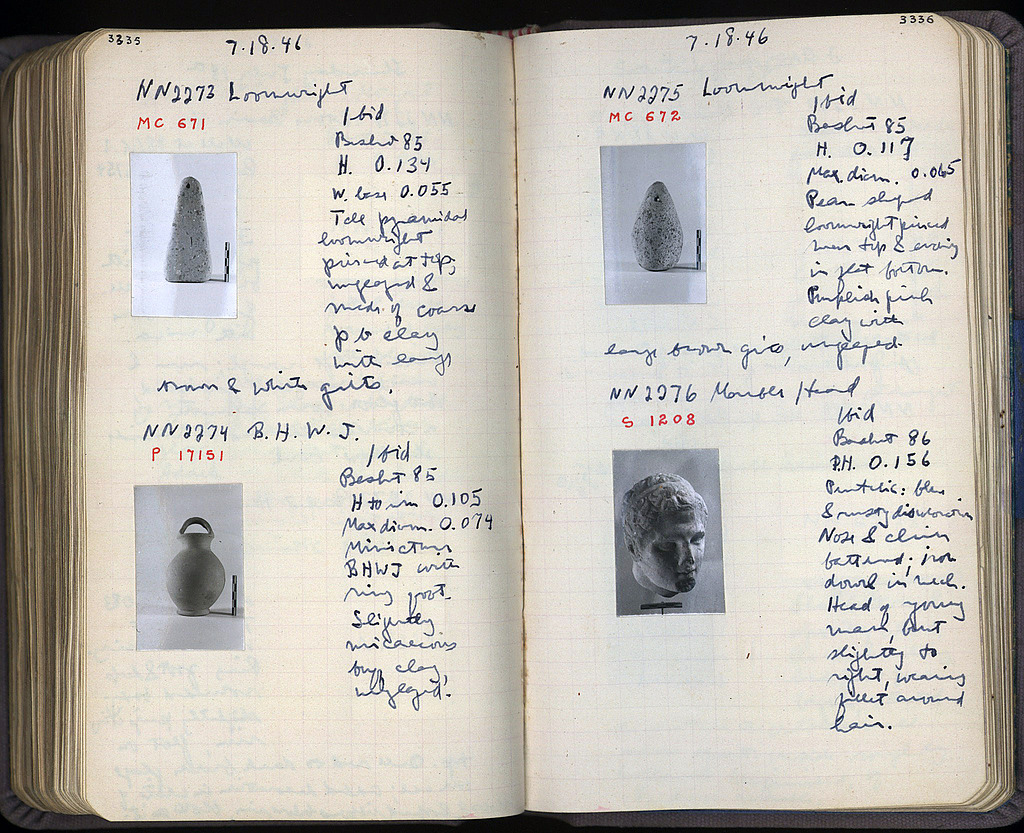 3335
7.18.46
NN2273 Loomweight
MC 671
Ibid
Basket 85
H. 0.134
W. base 0.055
Tall pyramidal
loomweight
pierced at top;
unglazed &
made of coarse
clay
with large
brown & white grits.
NN2274 B.H.W.J.
P 17151
Ibid
Basket 85
H to rim 0.105
Max diam. 0.074
Miniature
BHWJ with
ring foot.
Slightly
micaceous
buff clay,
unglazed.
3336
7.18.46
NN2275 Loomweight
MC 672
Ibid
Basket 85
H. 0.117
Max. diam. 0.065
Pear shaped
loomweight pierced
near top & ending
in flat bottom.
Purplish pink
clay with
large brown grits, unglazed.
NN2276 Marble Head
S 1208
Ibid
Basket 86
P.H. 0.156
Pentelic: blue
& rusty discoloration
Nose & chin
battered; iron
dowel in neck.
Head of young
man, bent
slightly to
right, wearing
fillet around
hair.